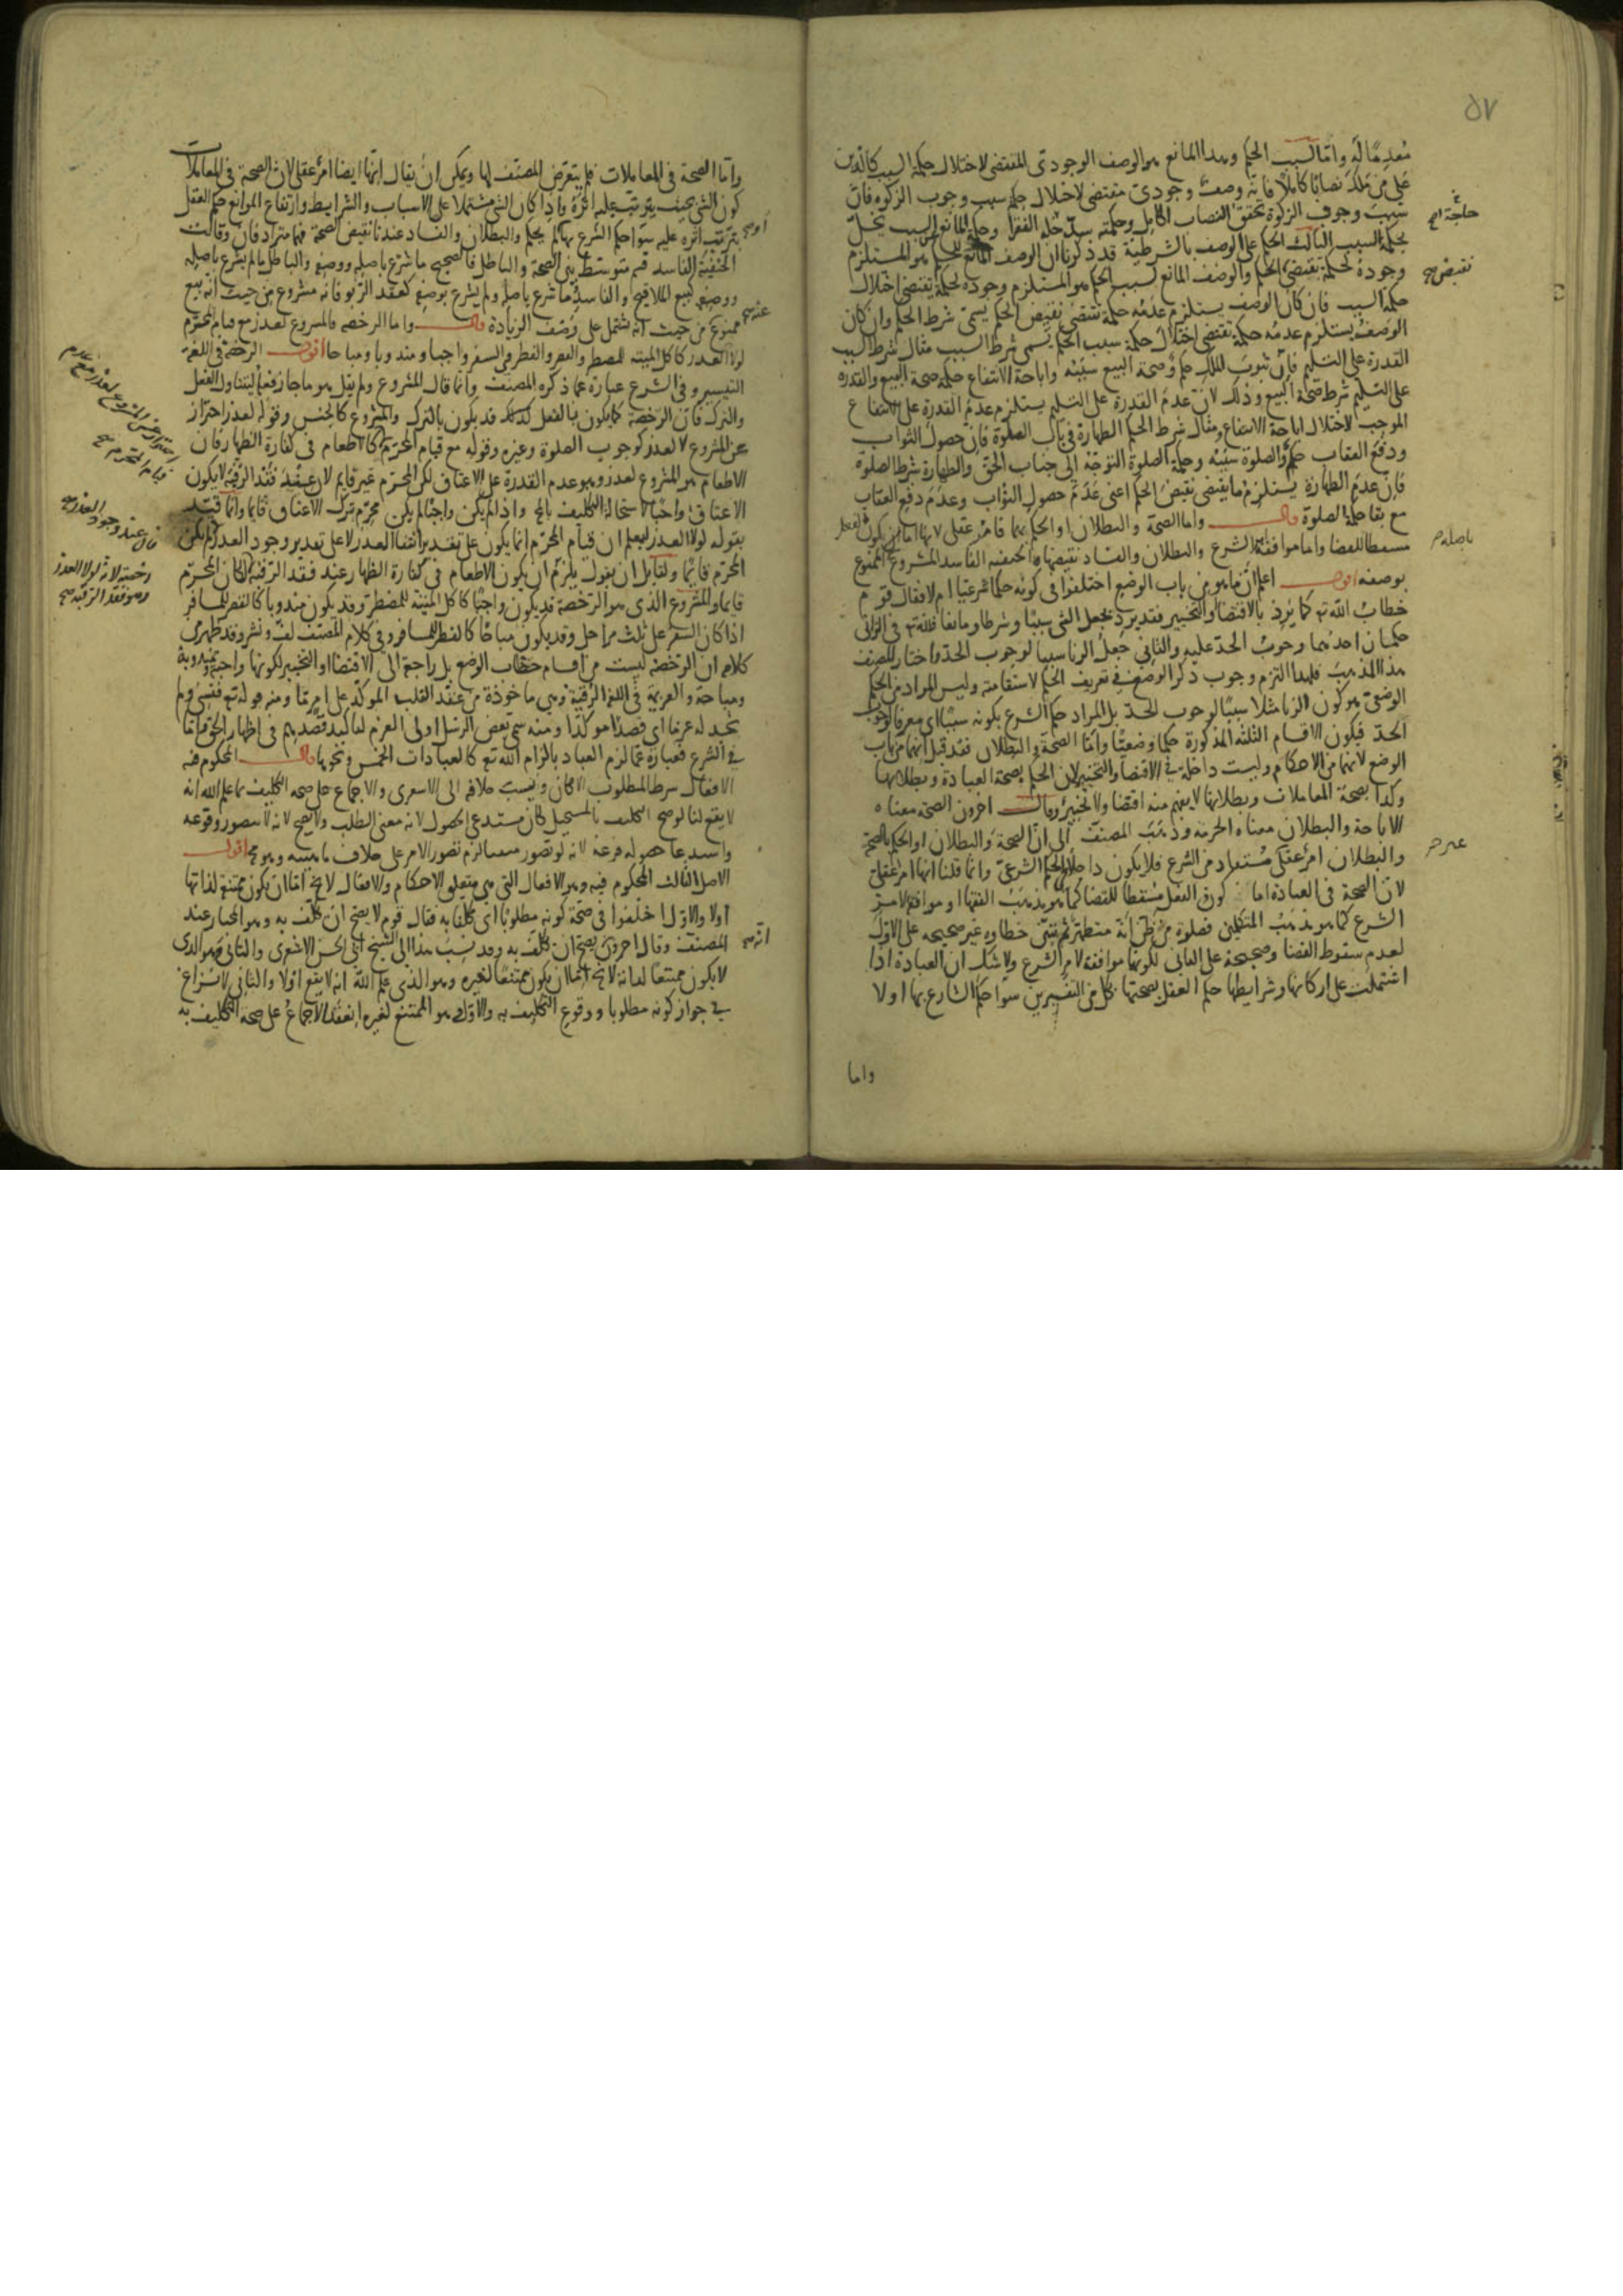 ٥٧
معدمًا له وامّا لسبب الحكم وهذا المانع هو الوصف الوجودىّ المقتضى لاختلال حكمة السبب كالدّين
على من ملك نصابًا كاملًا فانّه وصفٌ وجودىّ مقتضى لاختلال حكمة سبب وجوب الزكوة فانّ
سبب وجوب الزكوة تحقق النصاب الكامل وحكمته سدّ خلة الفقرا وحكمة المانع لسبب تخلّ
بحكمة السبب الثالث الحكم على الوصف بالشرطية قد ذكرنا ان الوصف المانع للحكم هو المستلزم
وجوده لحكمة تقتضى الحكم والوصف المانع لسبب الحكم هو المستلزم وجوده لحكمة يقتضى اختلال
حكمة السبب فان كان الوصف يستلزم عدمُه حكمة تقتضى نقيض الحكم يسمّى شرط الحكم وان كان
الوصف يستلزم عدمُه حكمة تقتضى اختلال حكمة سبب الحكم يسمى شرط السبب مثال شرط السبب
القدرة على التسليم فانّ ثبوت الملك حكم وصحة البيع سببه واباحة الانتفاع حكمة صحة البيع والقدره
على التسليم شرط صحّة البيع وذلك لانّ عدم القدرة على التسليم يستلزم عدم القدرة على الانتفاع
الموجب لاختلال اباحة الانتفاع ومثال شرط الحكم الطهارة فى باب الصلوة فان حصول الثواب
ودفع العقاب حكم والصلوة سببه وحكمة الصلوة التوجّه الى جناب الحقّ والطهارة شرط الصلوة
فانّ عدم الطهارة يستلزم ما يقتضى نقيض الحكم اعنى عدم حصول الثواب وعدم دفع العقاب
مع بقا حكمة الصلوة قال واما الصحة والبطلان او الحكم بهما فامر عقلى لانها اما ان يكون الفعل
مسقطا للقضا واما موافقة امر الشرع والبطلان والفساد نقيضها الحنفيه الفاسد المشروع الممنوع
بوصفه اقول اعلم انّ ما هو من باب الوضع اختلفوا فى كونه حكما شرعيا ام لا فقال قوم
خطابُ الله تع كما يرد بالاقتضا والتخيير فقد يرد بجعل الشى سببًا وشرطا ومانعا فلله تع فى الزانى
حكمان احدهما وجوبُ الحدّ عليه والثانى جعلُ الزنا سببا لوجوب الحدّ واختار المصنف
هذا المذهب فلهذا التزم وجوب ذكر الوضع فى تعريف الحكم لاستقامته وليس المراد من الحكم
الوضعى هو كون الزنا مثلا سببًا لوجوب الحدّ بل المراد حكم الشرع بكونه سببًا اى معرفا لوجوب
الحدّ فيكون الاقسام الثلثه المذكورة حكما وضعيًا وامّا الصحة والبطلان فقد قيل انهما من باب
الوضع لانهما من الاحكام وليست داخلة فى الاقتضا والتخيير لان الحكم بصحة العبادة وبطلانها
وكذا بصحة المعاملات وبطلانها لا يفهم منه اقتضا ولا تخيير وقال اخرون الصحة معناه
الاباحة والبطلان معناه الحرمة وذهب المصنف الى انّ الصحة والبطلان او الحكم بالصحة
والبطلان امرٌ عقلىّ مُستفاد من الشرع فلا يكون داخلًا فى الحكم الشرعىّ وانما قلنا انها امر عقلى
لانّ الصحة فى العبادة اما كون الفعل مُسقطًا للقضا كما هو مذهب الفقها او موافقة لامر
الشرع كما هو مذهب المتكلمين فصلوة من ظن انّه متطهر ثم تبيّن خطاؤه غير صحيحه على الاوّل
لعدم سقوط القضا وصحيحة على الثانى لكونها موافقة لامر الشرع ولا شك ان العبادة اذا
اشتملت على اركانها وشرايطها حكم العقل بصحتها بكل من التفسيرين سوا حكم الشارع بها او لا
واما
حاجة صح
نقيض صح
باصله
وامّا الصحة فى المعاملات فلم يتعرّض المصنّف لها ويمكن ان يقال انّها ايضا امرٌ عقلى لان الصحة فى المعاملات
كون الشى بحيث يترتب عليه اثرُه واذا كان الشى مشتملا على الاسباب والشرايط وارتفاع الموانع حكم العقل
بترتب اثره عليه سوا حكم الشرع بها او لم يحكم والبطلان والفساد عندنا نقيض الصحة فهما مترادفان وقالت
الحنفيّة الفاسد قسم متوسّط بين الصحة والباطل فالصحيح ما شرع باصله ووصفه والباطل ما لم يشرع باصله
ووصفه كبيع الملاقيح والفاسد ما شرع باصله ولم يشرع بوصفه كعقد الربو فانه مشروع من حيث انّه بيع
ممنوع من حيث انه يشتمل على وصف الزيادة قال واما الرخصه فالمشروع لعذر مع قيام المحرّم
لولا العذر كاكل الميته للمضطر والقصر والفطر فى السفر واجبا ومندوبا ومباحا اقول الرخصة فى اللغة
التيسير وفى الشرع عبارة عما ذكره المصنف وانما قال المشروع ولم يقل هو ما جاز فعله ليتناول الفعل
والترك فانّ الرخصة كما يكون بالفعل كذلك قد يكون بالترك والمشروع كالجنس وقوله لعذر احتراز
عن المشروع لا لعذر كوجوب الصلوة وغيره وقوله مع قيام المحرّم كالاطعام فى كفارة الظهار فان
الاطعام هو المشروع لعذر وهو عدم القدرة على الاعتاق لكن المحرّم غير قايم لان عند فقد الرقبة لا يكون
الاعتاق واجبًا لاستحالة التكليف بالمحال واذ لم يكن واجبًا لم يكن محرّم ترك الاعتاق قايما وانما قيّد
بقوله لولا العذر ليعلم ان قيام المحرّم انما يكون على تقدير انتفا العذر لا على تقدير وجود العذر لم يكن
المحرّم قايمًا ولقايل ان يقول يلزم ان يكون الاطعام فى كفارة الظهار عند فقد الرقبة كان المحرّم
قايما والمشروع الذى هو الرخصة قد يكون واجبًا كاكل الميّتة للمضطر وقد يكون مندوبا كالقصر للمسافر
اذا كان السفر على ثلث مراحل وقد يكون مباحًا كالفطر للمسافر وفى كلام المصنف لفّ ونشر وقد ظهر من
كلامه ان الرخصة ليست من اقسام خطاب الوضع بل راجعة الى الاقتضا او التخيير لكونها واجبة ومندوبة
ومباحة والعزيمة فى اللغة الرقية وهى ماخوذة من عقد القلب المؤكّد على امرٍ مّا ومنه قوله تع فنسى ولم
نجد له عزما اى قصدًا مؤكّدا ومنه سمّى بعض الرسل اولى العزم لتاكيد قصدهم فى اظهار الحق وامّا
فى الشرع فعبارة عمّا لزم العباد بالزام الله تع كالعبادات الخمس ونحوها قال المحكوم فيه
الافعال شرط المطلوب الامكان ونسبت خلافه الى الاشعرى والاجماع على صحة التكليف بما علم الله انه
لا يقع لنا لو صح التكليف بالمستحيل لكان مستدعى الحصول لانه معنى الطلب ولا يصح لانه لا يتصور وقوعه
واستدعا حصوله فرعه لانه لو تصور مثبتا لزم تصور الامر على خلاف ماهيته وهو مح اقول
الاصل الثالث المحكوم فيه وهو الافعال التى هى متعلق الاحكام والافعال لا يخ امّا ان يكون ممتنع لذاتها
اولا والاوّل اختلفوا فى صحّة كونه مطلوبًا اى مكلفا به فقال قوم لا يصح ان يكلّف به وهو المختار عند
المصنف وقال اخرون يصحّ ان يكلّف به وقد نسب هذا الى الشيخ ابى الحسن الاشعرى والثانى وهو الذى
لا يكون ممتنعًا لذاته لا يخ امّا ان يكون ممتنعًا لغيره وهو الذى علم الله انه لا يقع اولا والثانى لا نزاع
فى جواز كونه مطلوبا ووقوع التكليف به والاوّل هو الممتنع لغيره انعقد الاجماع على صحة التكليف به
او صح
عنه صح
احتراز عن المشروع لعذر مع عدم
قيام المحرم صح
فان عند وجود العذر صح
رخصته لانه لولا العذر
وهو فقد الرقبه صح